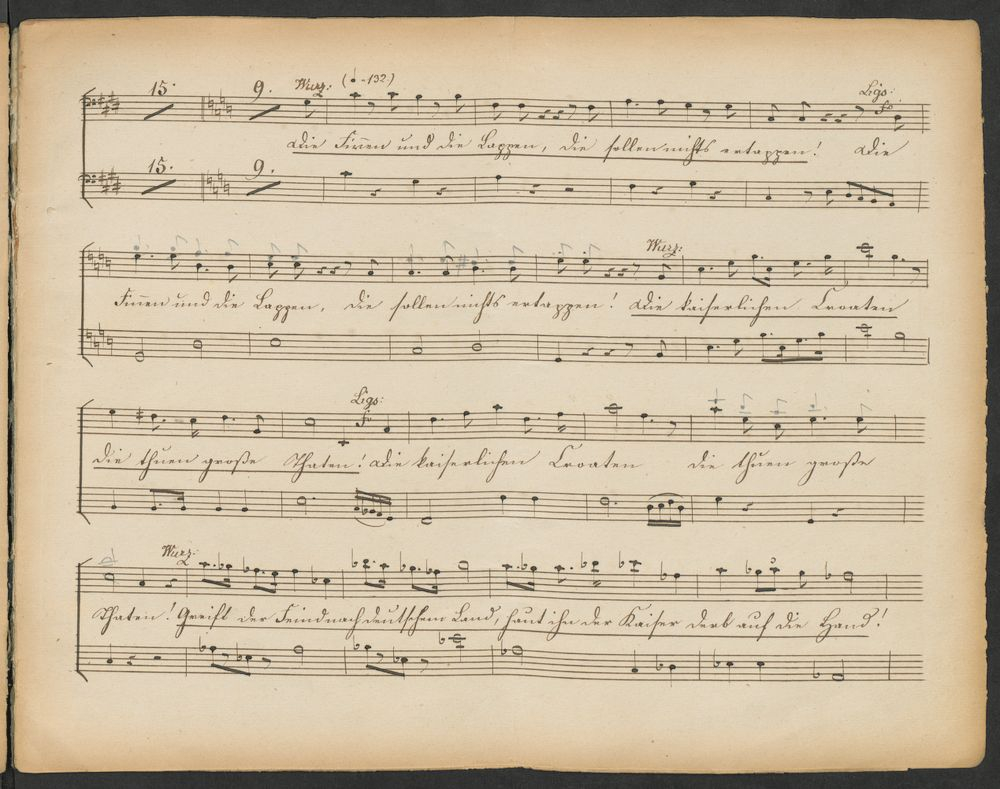 15. 9. Wurz: (♩ -132.) Ligs:
Die Finnen und die Lappen, die sollen nichts ertappen! Die
15. 9.
Wurz:
Finnen und die Lappen, die sollen nichts ertappen! Die kaiserlichen Croaten
Ligs:
die thuen große Thaten! Die kaiserlichen Croaten die thuen große
Wurz:
Thaten! Greift der Feind nach deutschem Land, haut ihn der Kaiser derb auf die Hand!